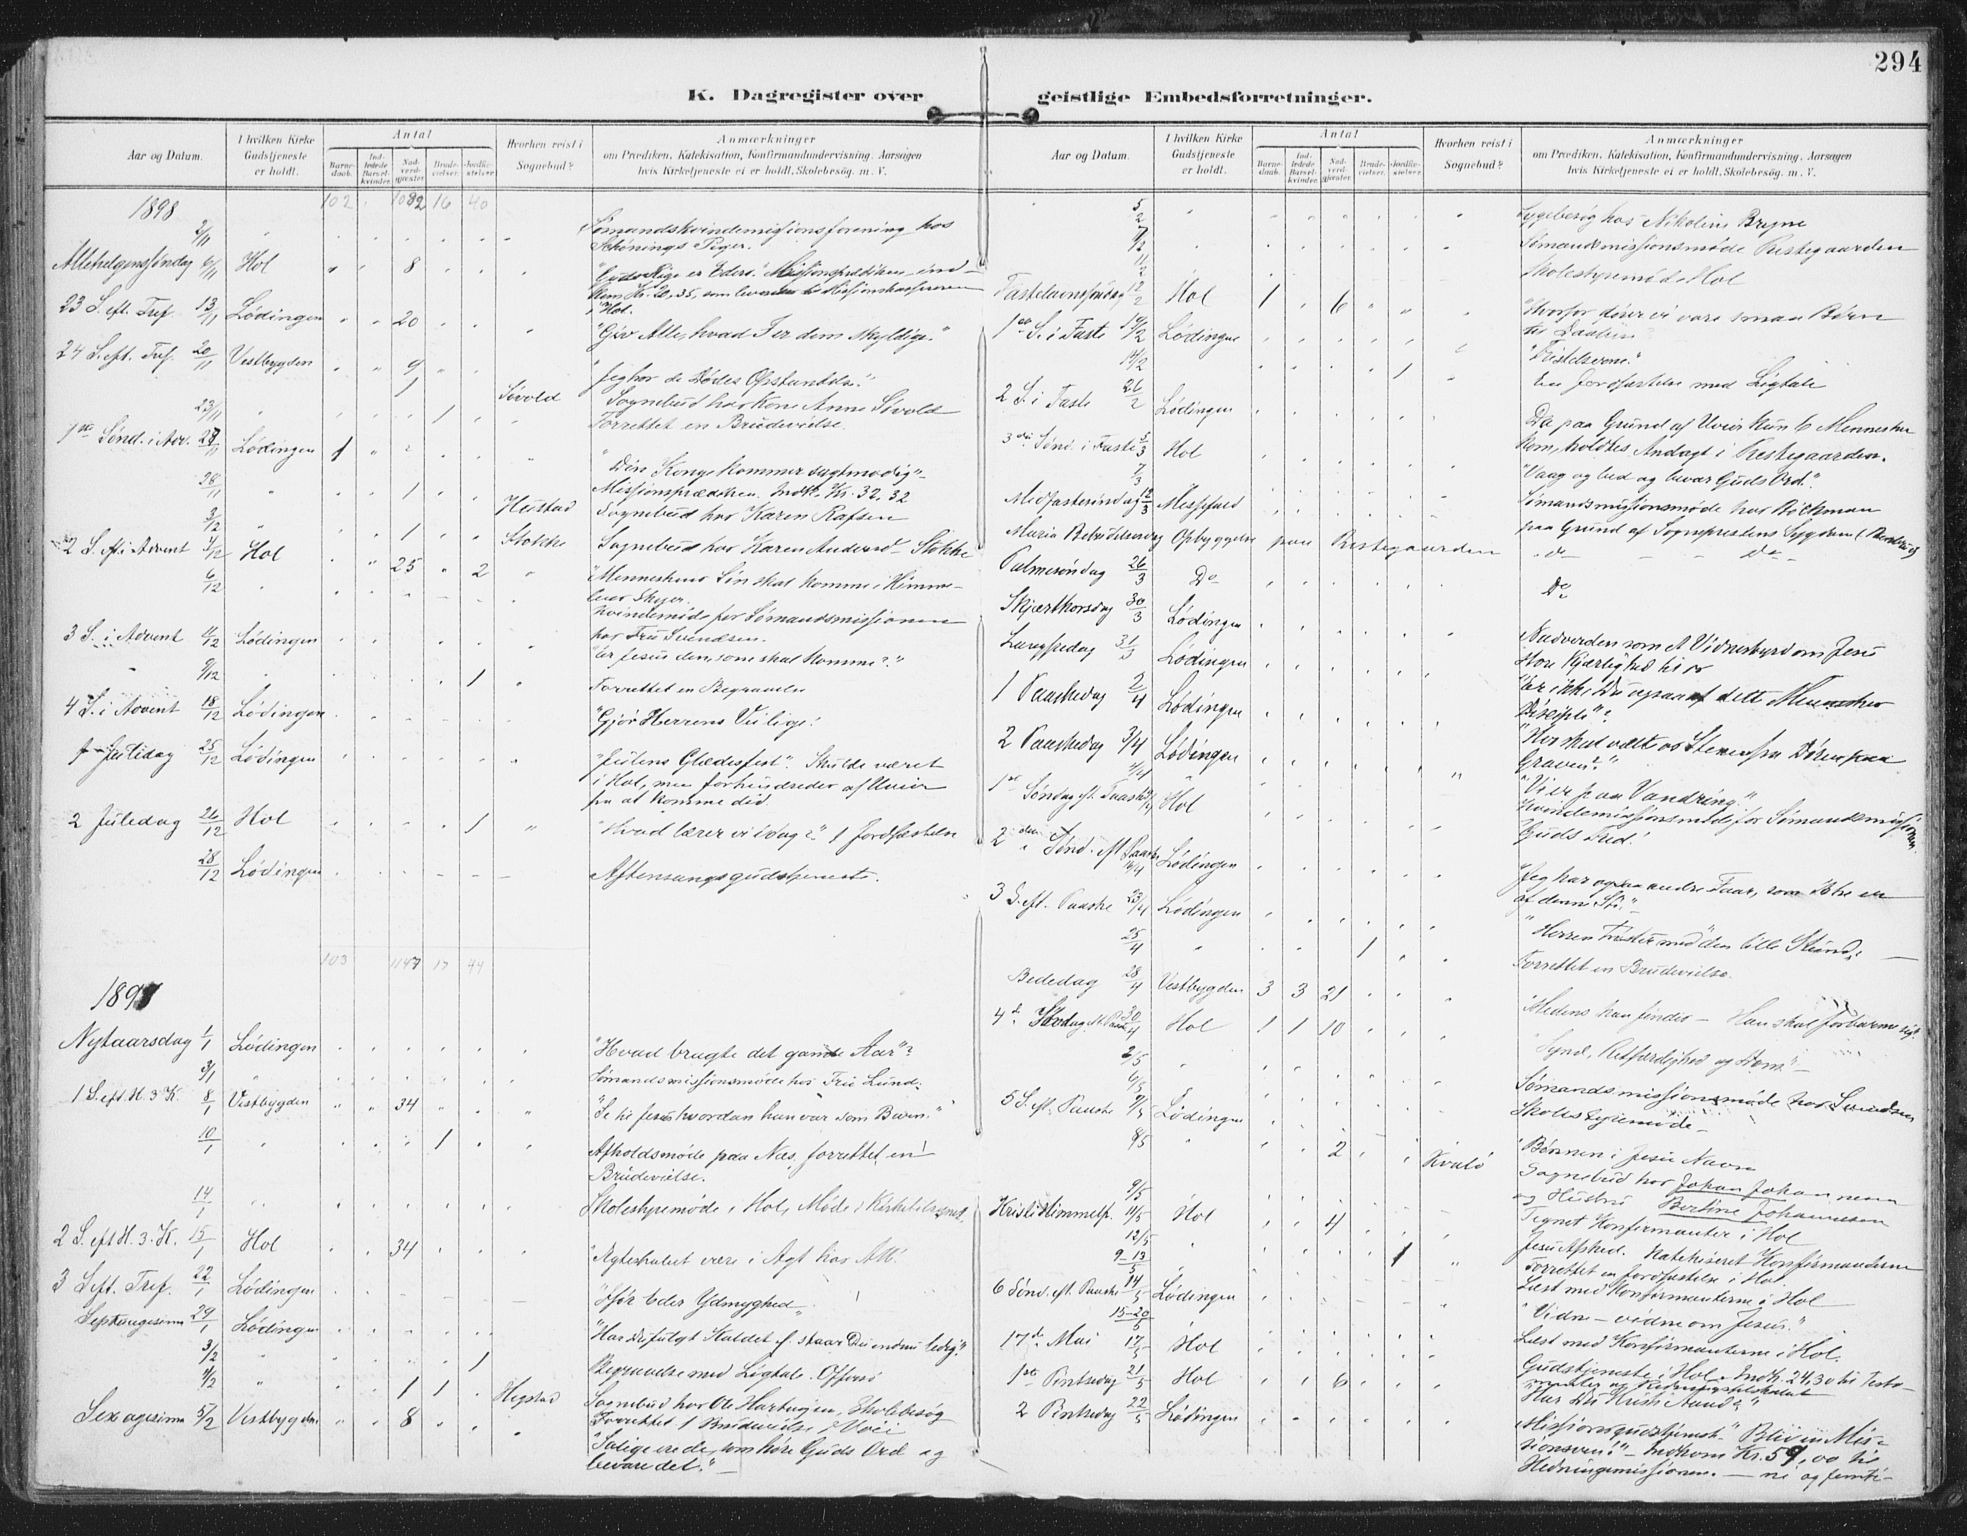 294
K. Dagregister over geistlige Embedsforretninger.
Aar og Datum. I hvilken Kirke Gudstjeneste er holdt. Antal Barnedaab. Indledede Barselkvinder. Nadverdgjæster. Brudevielser. Jordfæstelser. Hvorhen reist i Sognebud? Anmærkninger om Prædiken, Katekisation, Konfirmandundervisning, Aarsagen hvis Kirketjeneste ei er holdt, Skolebesøg. m. V.
1898 102 1082 16 40
2/11 Sømandskvindemissionsforening hos
Schönings Piger.
Allehelgensøndag 6/11 Hol 8 "Guds Rige er Eders." Missionsprædiken ind-
kom Kr. 20,35, som leveredes til Missionskassereren
i Hol.
23 S. eft. Tref. 13/11 Lødingen 20 "Gjør Alle, hvad I er dem skyldige."
24 S. eft. Tref. 20/11 Vestbygden 9 "Jeg har de Dødes Opstandelse."
1 Sivold Sognebud hos Kone Anne Sivold
23/11 1 Forrettet en Brudevielse.
1ste Sønd. i Adv. 27/11 Lødingen 1 "Din Konge kommer sagtmodig"
Missionsprædiken. Indk. Kr. 32,32
28/11 1 Hustad Sognebud hos Karen Rafsen
3/12 1 Stokke Sognebud hos Karen Andersd. Stokke
2 S. i Advent 4/12 Hol 25 2 "Menneskens Søn skal komme i Himme-
lens Skyer.
6/12 Kvindemøde for Sømandsmissionen
hos Fru Svendsen.
3 S. i Advent 11/12 Lødingen "Er Jesus den, som skal komme?"
9/12 1 Forrettet en Begravelse
4 S. i Advent 18/12 Lødingen "Gjør Herrens Vei lige!
1 Juledag 25/12 Lødingen "Julens Glædesfest". Skulde været
i Hol, men forhindredes af Uveir
fra at komme did.
2 Juledag 26/12 Hol 1 "Hvad lærer vi idag?" 1 Jordfæstelse
28/12 Lødingen Aftensangsgudstjeneste.
103 1147 17 44
1899
Nytaarsdag 1/1 Lødingen "Hvad bragte det gamle Aar"?
3/1 Sømandsmissionsmøde hos Fru Lund.
1 S. eft. H. 3 K. 8/1 Vestbygden 34 "Se til Jesus hvordan han var som Barn."
10/1 1 Afholdsmøde paa Næs, forrettet en
Brudevielse.
14/1 Skolestyremøde i Hol, Møde i Kirketilsynet.
2 S. eft. H. 3. K. 15/1 Hol 34 "Ægteskabet være i Agt hos Alle!
3 S. eft. Tref. 22/1 Lødingen "Ifør Eder Ydmyghed"
Septuagesima 29/1 Lødingen "Har Du fulgt Kaldet f. staar Du endnu ledig?"
3/2 1 Begravelse med Ligtale. Offersø
4/2 1 1 Hegstad Sognebud hos Ole Hartvigsen, Skolebesøg
Sexagesima 5/2 Vestbygden 8 Forrettet 1 Brudevielse i
"Salige ere de, som høre Guds Ord og
bevare det." —
Aar og Datum. I hvilken Kirke Gudstjeneste er holdt. Antal Barnedaab. Indledede Barselkvinder. Nadverdgjæster. Brudevielser. Jordfæstelser. Hvorhen reist i Sognebud? Anmærkninger om Prædiken, Katekisation, Konfirmandundervisning, Aarsagen hvis Kirketjeneste ei er holdt, Skolebesøg. m. V.
5/2 Sygebesøg hos Nikoline Bryne
7/2 Sømandsmissionsmøde Prestegaarden
11/2 Skolestyremøde Hol
Fastelavnssøndag 12/2 Hol 1 6 "Hvorfor fører vi vore smaa Børn
til Daaben
1ste S. i Faste 19/2 Lødingen "Fristelserne."
14/2 1 En Jordfæstelse med Ligtale
2 S. i Faste 26/2 Lødingen Da paa Grund af Uveir kun 6 Mennesker
kom, holdtes Andagt i Prestegaarden.
3die Sønd. i Faste 5/3 Hol "Vaag og bed og bevar Guds Ord."
7/3 Sømandsmissionsmøde hos Röckman
Midfastesøndag 12/3 Messefald paa Grund af Sognprestens Sygdom
Mariæ Bebudelsesdag Opbyggelse paa Prestegaarden do do
Palmesøndag 26/3 Do Do
Skjærthorsdag 30/3 Lødingen Nadverden som et Vidnesbyrd om Jesu
store Kjærlighed til os
Langfredag 31/3 Lødingen "Er ikke Du ogsaa af dette Menneskes
Disciple"?
1 Paaskedag 2/4 Lødingen "Hvo skal vælte os Stenen fra Døren paa
Graven?"
2 Paaskedag 3/4 Lødingen "Vi er paa Vandring."
4/4 Kvindemissionsmøde for Sømandsmissionen.
1ste Søndag eft. Paaske 9/4 Hol "Guds Fred!
2den Sønd. eft. Paaske 16/4 Lødingen "Jeg har ogsaa andre Faar, som ikke er
af denne Sti."
3 S. eft. Paaske 23/4 Lødingen "Herrens Trøster med den lille Stund,
25/4 1 Forrettet en Brudevielse.
Bededag 28/4 Vestbygden 3 3 21 "Medens han findes — Han skal forbarme sig."
4de Søndag eft. Paaske 30/4 Hol 1 1 10 "Synd, Retfærdighed og Dom." —
2/5 Sømandsmissionsmøde hos Svendsen
6/5 Skolestyremøde —
5 S. eft. Paaske 7/5 Lødingen "Bønnen i Jesu Navn
8/5 2 Kvalö Sognebud hos Johan Johannesen
og Hustru Bertine Johannesen
9/5 Tegnet Konfirmanter i Hol
Kristi Himmelf. 11/5 Hol 4 Jesu Afsked. Katekiseret Konfirmanterne
12/5 1 Forrettet en Jordfæstelse i Hol.
9-13/5 Læst med Konfirmanterne i Hol
6 Sønd. eft. Paaske 14/5 Lødingen "Vidne — vidne om Jesus."
15-20/5 Læst med Konfirmanterne i Hol.
17de Mai 17/5 Hol Gudstjeneste i Hol. Indk. 24,30 til
1ste Pintsedag 21/5 Hol 6 "Har Du Kristi Aand?"
2 Pintsedag 22/5 Lødingen Missionsgudstjeneste "Bliv en Mis-
sionsven!" — Indkom Kr. 59,00 til
Hedningemissionen. — ni og femti —